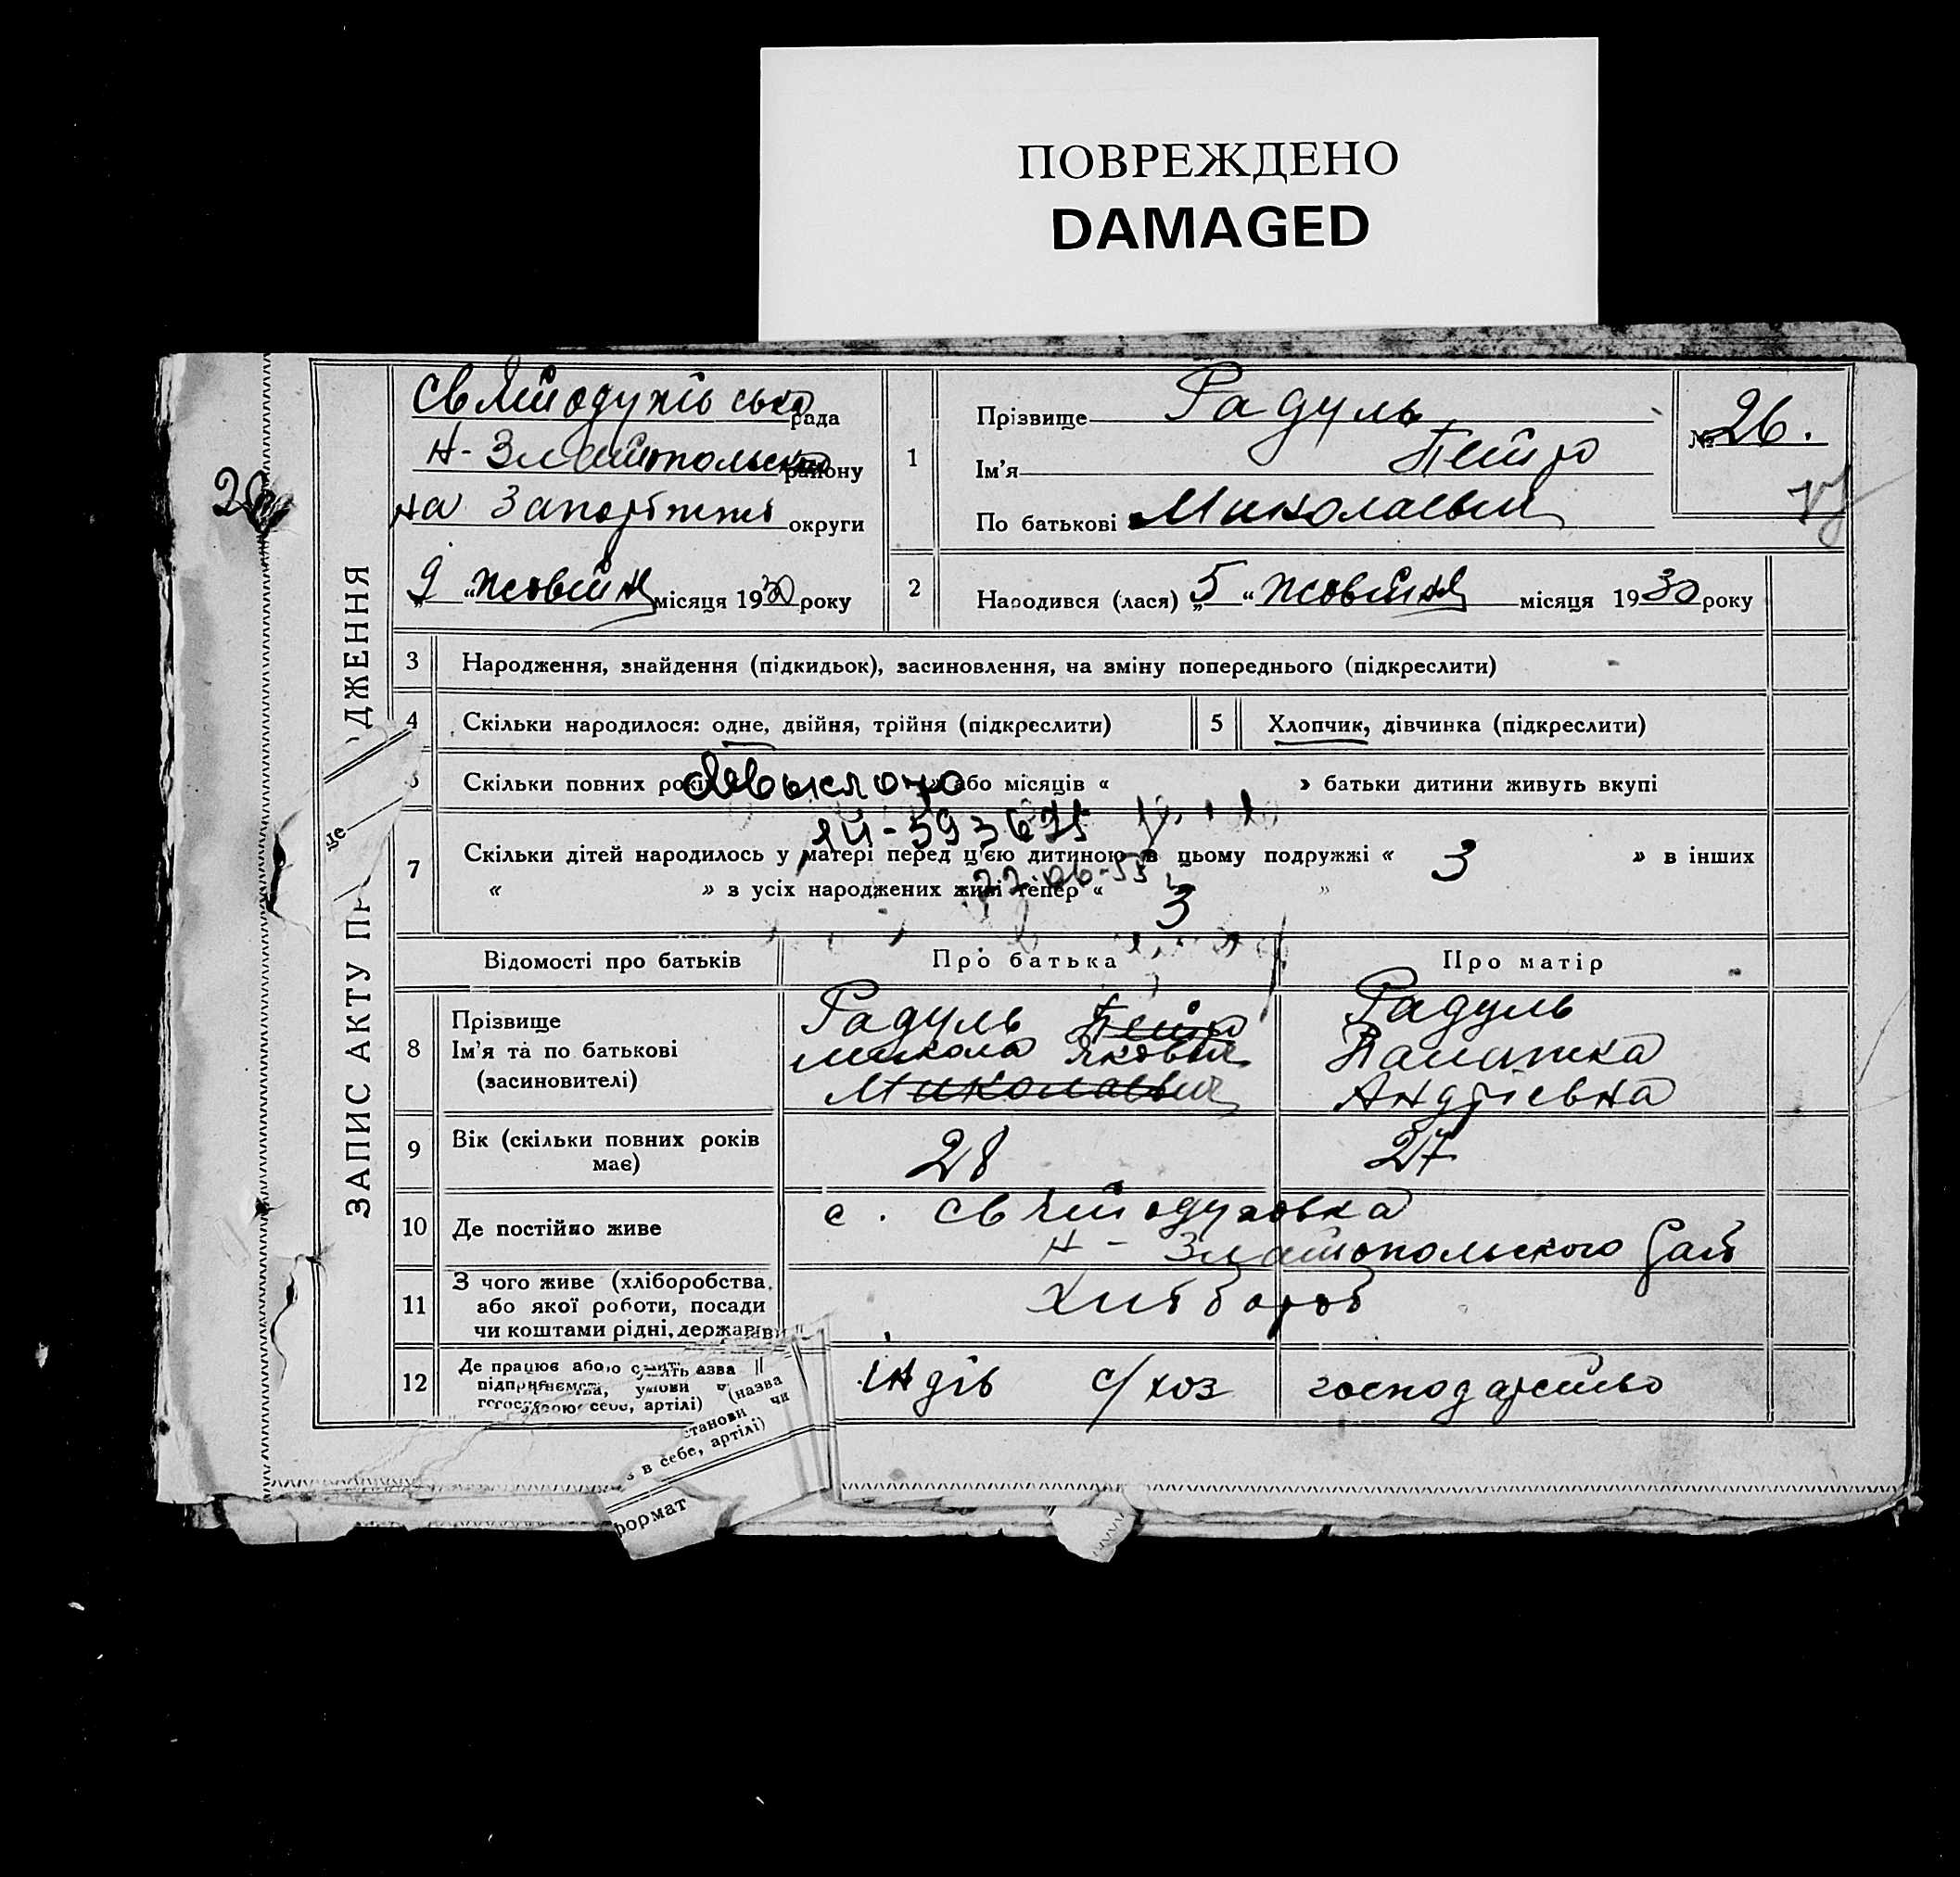 ПОВРЕЖДЕНО
DAMAGED
ЗАПИС АКТУ ПР ДЖЕННЯ
Святодухівська рада
Н-Златопольська району
на Запоріжжі округи
„9“ жовтня місяця 1930 року
1
Прізвище Радуль
Ім'я Петро
По батькові Миколаевич
№ 26.
2
Народився (лася) „5“ жовтня місяця 1930 року
3 Народження, знайдення (підкидьок), засиновлення, на зміну попереднього (підкреслити)
4 Скільки народилося: одне, двійня, трійня (підкреслити)
5 Хлопчик, дівчинка (підкреслити)
Скільки повних рокі або місяців « » батьки дитини живуть вкупі
593695
7 Скільки дітей народилось у матері перед ц'єю дитиною в цьому подружжі « 3 » в інших
« » в усіх народжених живі тепер « 3 "
Відомості про батьків Про батька Про матір
8 Прізвище
Ім'я та по батькові
(засиновителі)
Радуль Петро
Микола Якович
Миколаевич
Радуль
Палажка
Андріевна
9 Вік (скільки повних років має) 28 27
10 Де постійно живе с. Святодуховка
Н - Златопольского рай
11 З чого живе (хліборобства,
або якої роботи, посади
чи коштами рідні, держави
Хлібороб
12 Де працює або
індів с/хоз господарство
(назва
станови чи
в себе, артілі)
формат